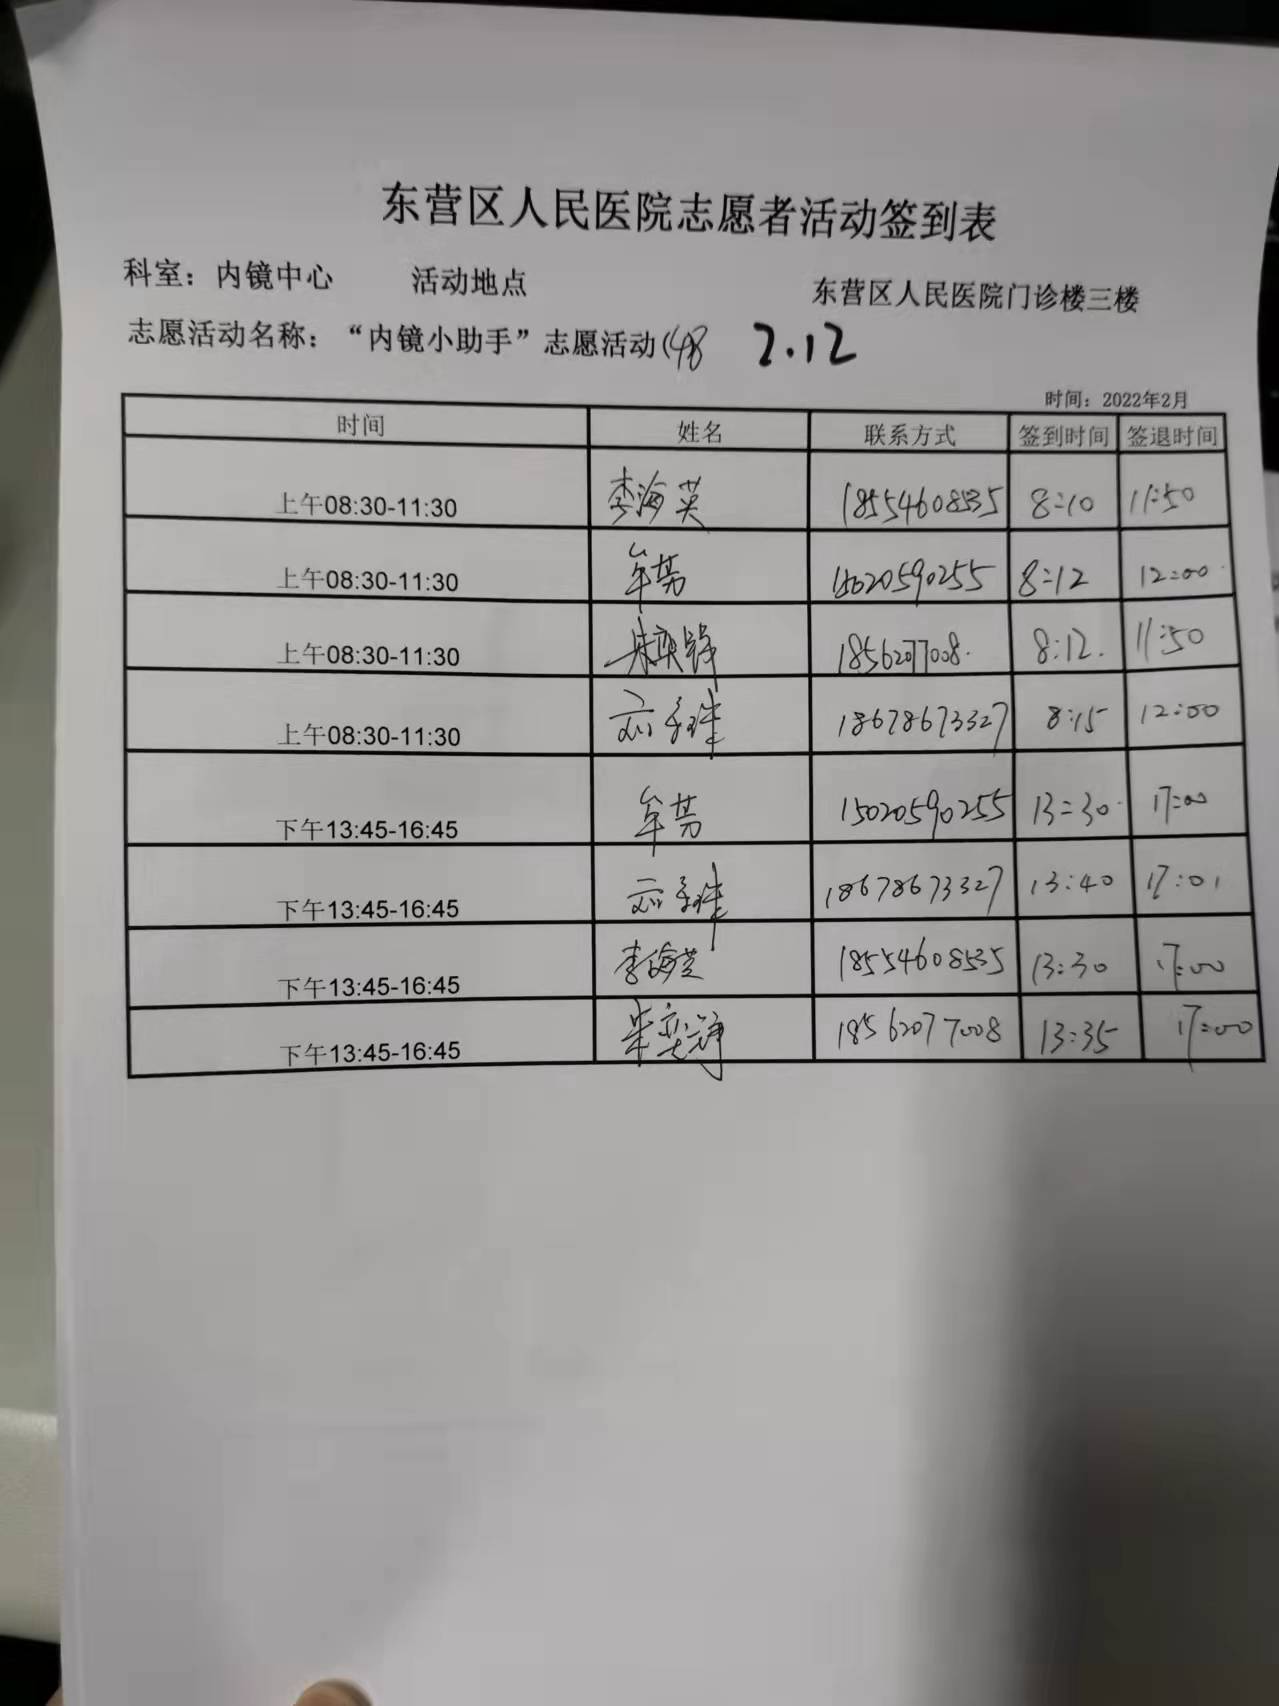 东营区人民医院志愿者活动签到表
科室：内镜中心 活动地点 东营区人民医院门诊楼三楼
志愿活动名称：“内镜小助手”志愿活动 2.12
时间：2022年2月
时间 姓名 联系方式 签到时间 签退时间
上午08:30-11:30 李海英 18554608535 8:10 11:50
上午08:30-11:30 牟芳 8:12 12:00
上午08:30-11:30 18562077008 8:12 11:50
上午08:30-11:30 18678673327 8:15 12:00
下午13:45-16:45 牟芳 15020590255 13:30 17:00
下午13:45-16:45 18678673327 13:40 17:01
下午13:45-16:45 李海英 18554608535 13:30 17:00
下午13:45-16:45 18562077008 13:35 17:00